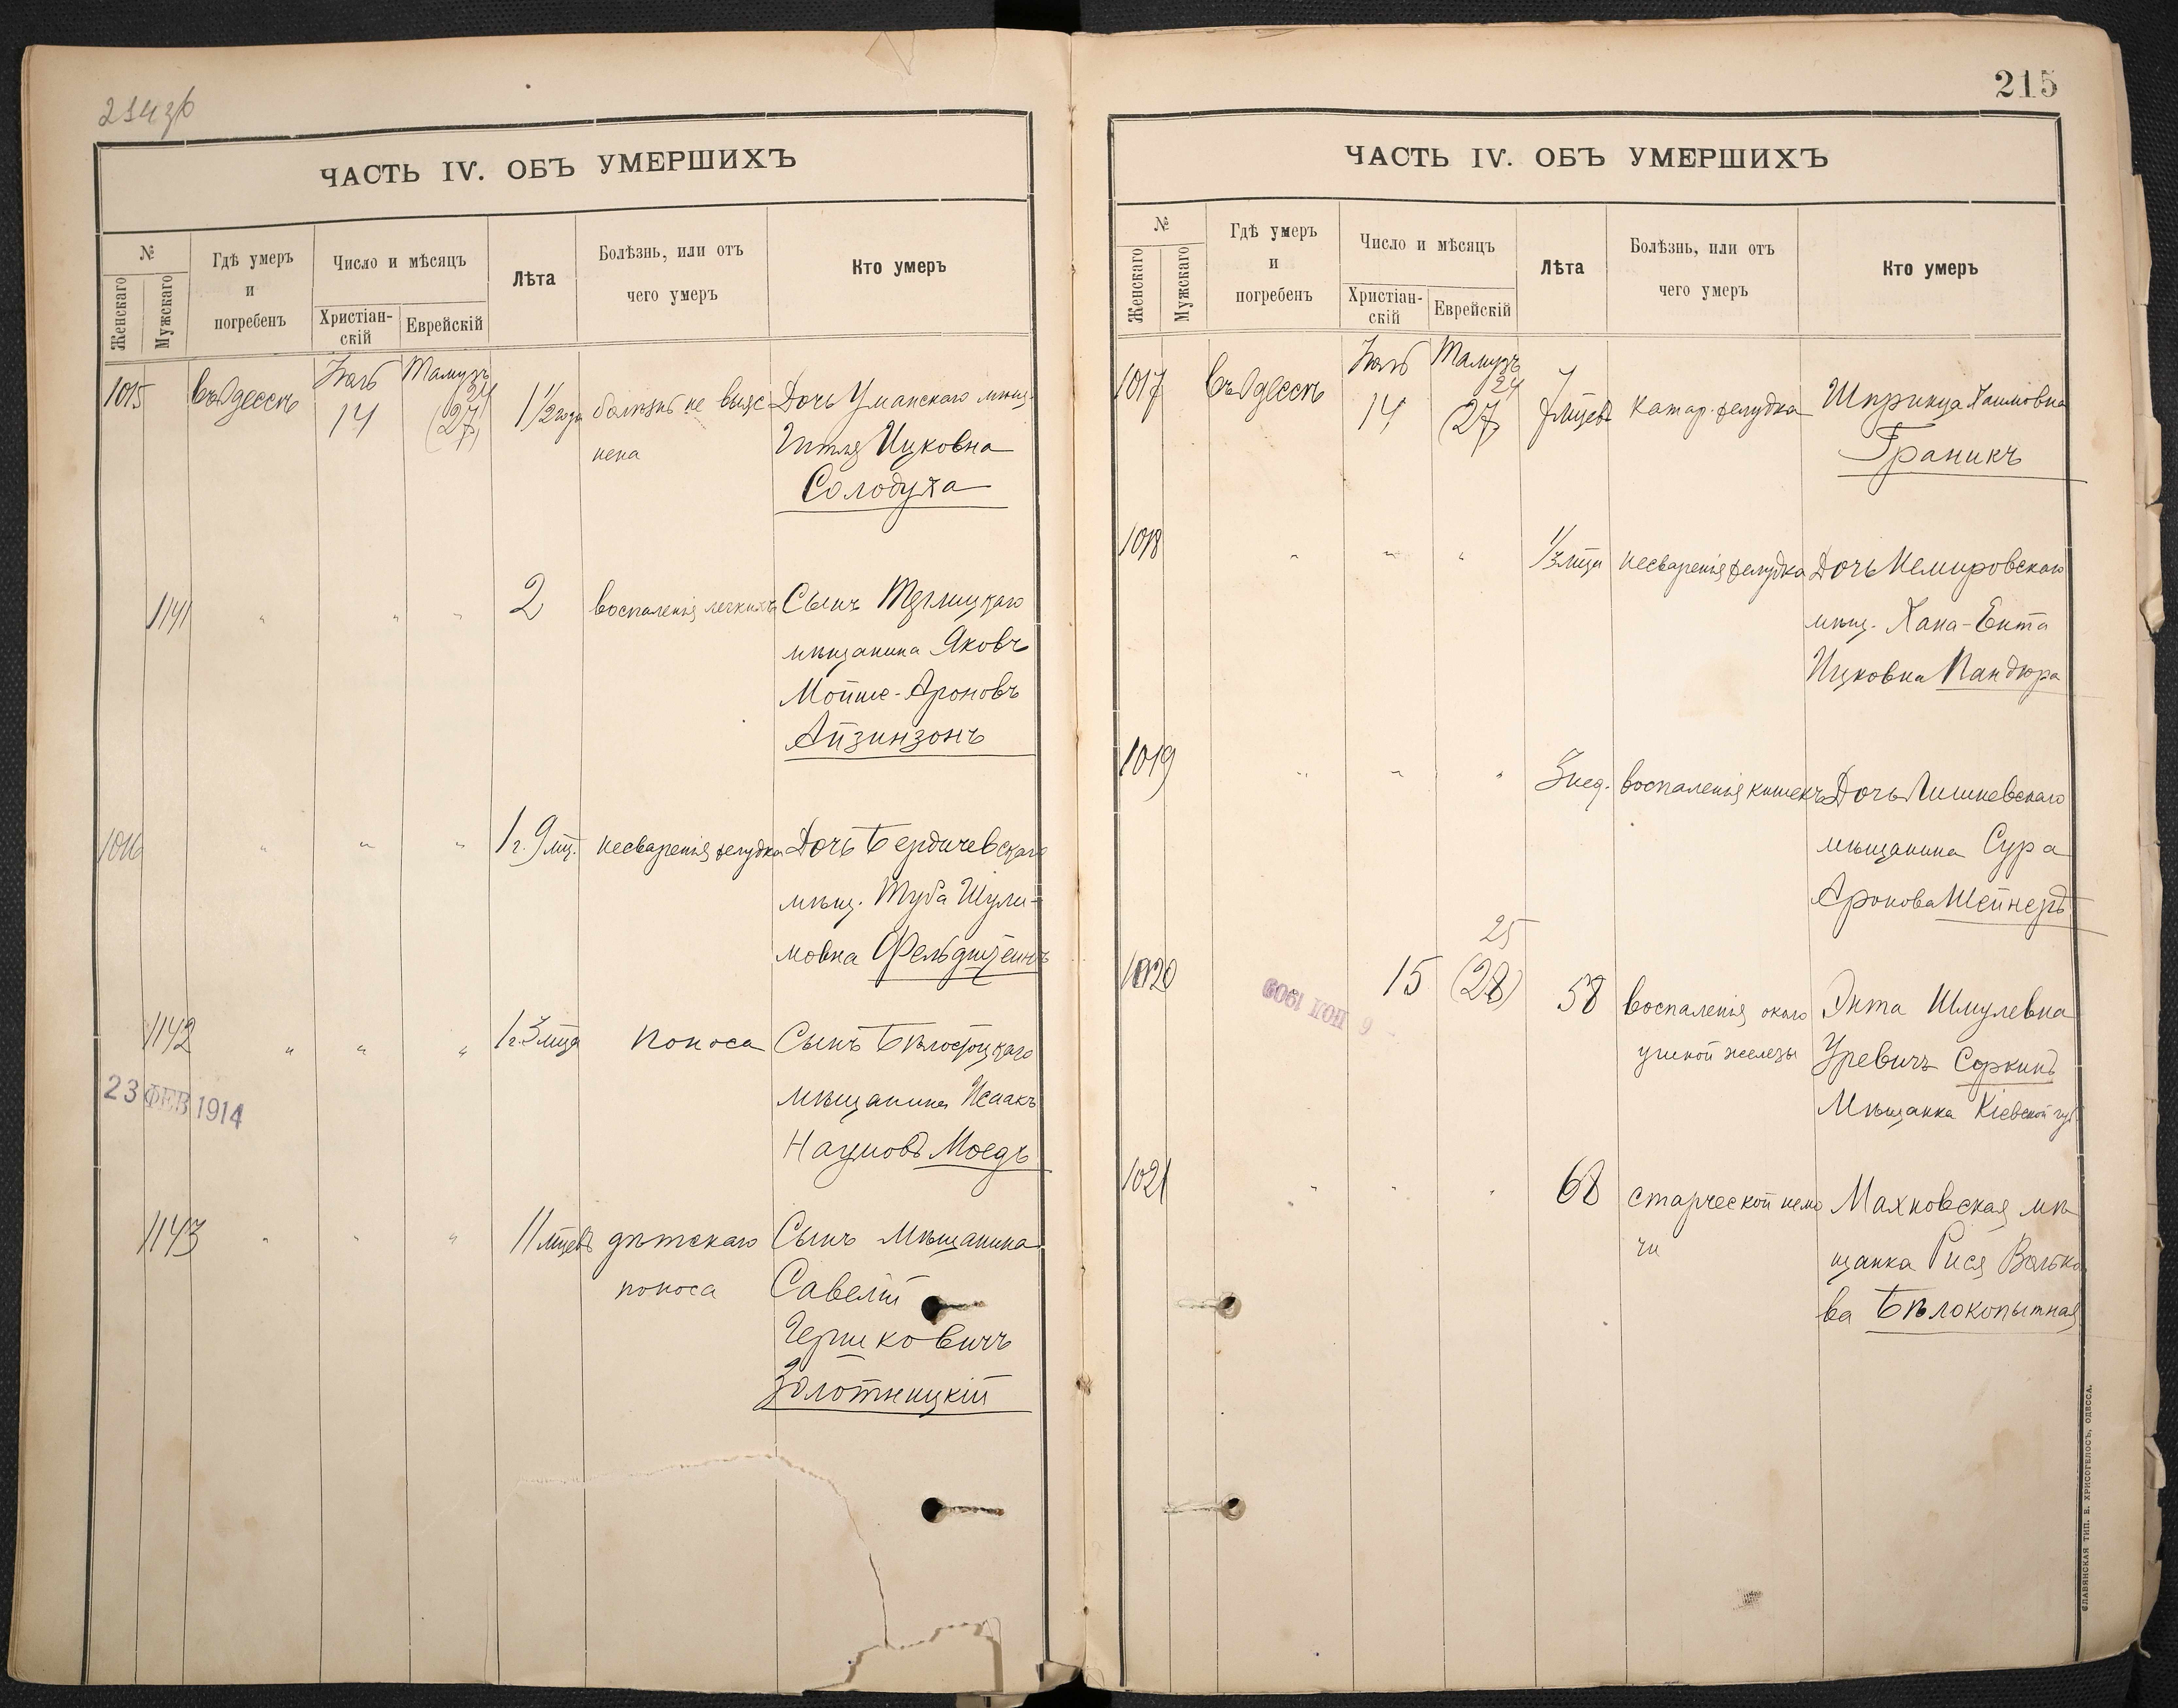 214 об
ЧАСТЬ IV. ОБЪ УМЕРШИХЪ
№
Женскаго
Мужскаго
Гдѣ умеръ
и
погребенъ
Число и мѣсяцъ
Христіан-
скій
Еврейскій
Лѣта
Болѣзнь, или отъ
чего умеръ
Кто умеръ
1015 въ Одессѣ Іюль 14 Тамузъ 24 (27) 1 1/2 года болѣзнь не выяс Дочь Уманскаго мѣщ.
нена Гитля Ицковна
Солодуха
1141 " " " 2 воспаленія легкихъ Сынъ Теплицкаго
мѣщанина Яковъ
Мойше-Ароновъ
Айзинзонъ
1016 " " " 1 г. 9 мц. несваренія желудка Дочь Бердичевскаго
мѣщ. Туба Шули-
мовна Фельдштейнъ
1142 " " " 1 г. 3 мца поноса Сынъ Бѣлостоцкаго
мѣщанина Исаакъ
23 ФЕВ 1914
Наумовъ Моедъ
1143 " " " 11 мцевъ дѣтскаго Сынъ Мѣщанина
поноса Савелій
Гершковичъ
Золотницкій
215
ЧАСТЬ IV. ОБЪ УМЕРШИХЪ
№
Женскаго
Мужскаго
Гдѣ умеръ
и
погребенъ
Число и мѣсяцъ
Христіан-
скій
Еврейскій
Лѣта
Болѣзнь, или отъ
чего умеръ
Кто умеръ
1017 въ Одессѣ Іюль 14 Тамузъ 24 (27) 7 мцевъ катар. желудка Шпринца Хаимовна
Граникъ
1018 " " " 1/2 мца несваренія желудка Дочь Немировскаго
мѣщ. Хана-Ента
Ицковна Пандюра
1019 " " " 3 нед. воспаленія кишекъ Дочь
мѣщанина Сура
Аронова Шейнезъ
1020 15 25 (28) 58 воспаленія около Энта Шмулевна
ушной железы Гуревичъ Соркинъ
6 ІЮЛ 1909
Мѣщанка Кіевской губ.
1021 " " " 68 старческой немо Махновская мѣ
чи щанка Рися Волько
ва Бѣлокопытная
СЛАВЯНСКАЯ ТИП. Е. ХРИСОГЕЛОСЪ, ОДЕССА.